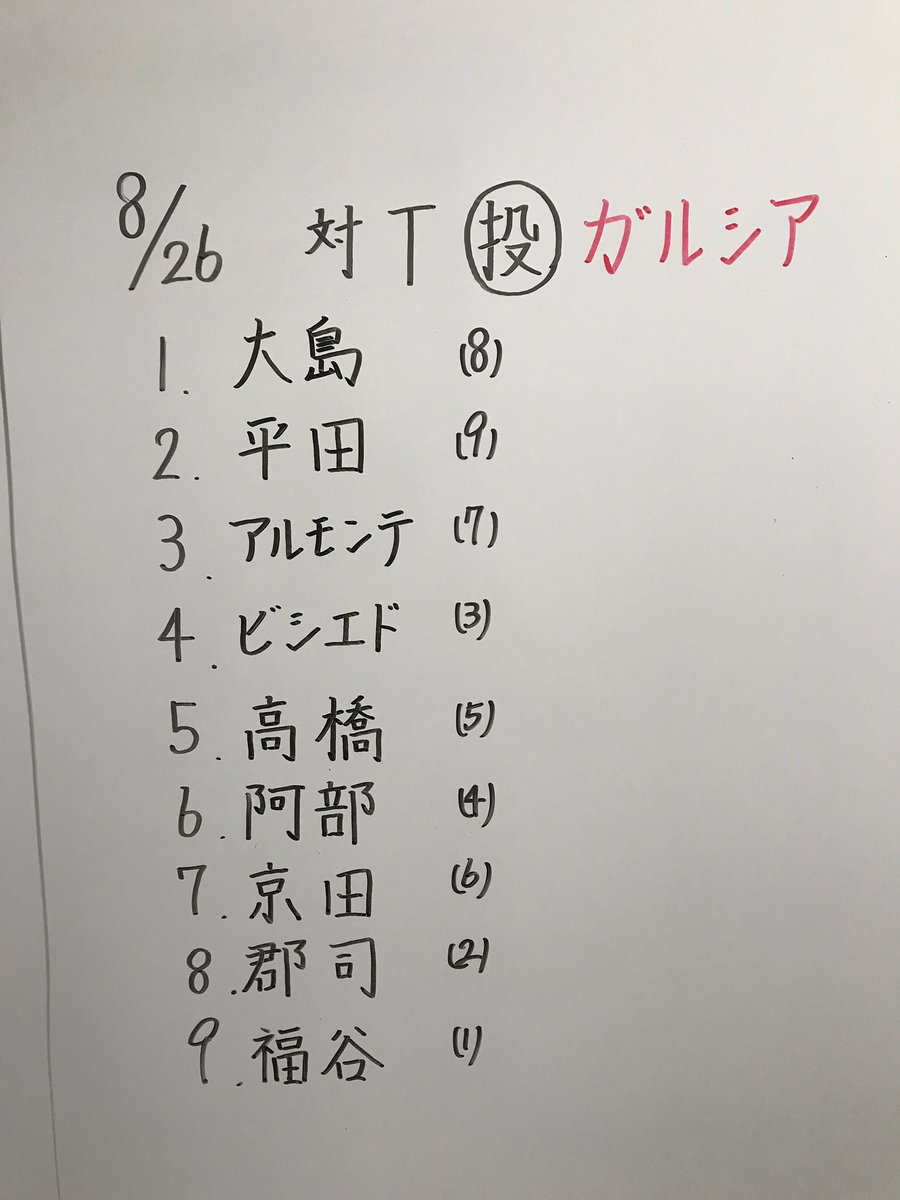 8/26 対T 投 ガルシア
1. 大島 (8)
2. 平田 (9)
3. アルモンテ (7)
4. ビシエド (3)
5. 高橋 (5)
6. 阿部 (4)
7. 京田 (6)
8. 郡司 (2)
9. 福谷 (1)